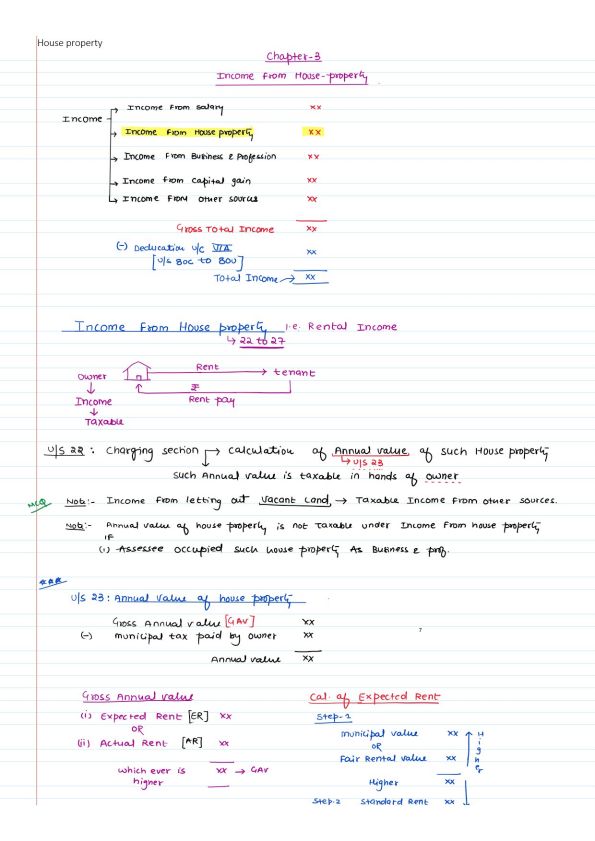 House property
Chapter-3
Income from House-property
Income
Income from salary xx
Income from House property xx
Income from Business & Profession xx
Income from Capital gain xx
Income from other sources xx
Gross Total Income xx
(-) Deducation u/c VIA xx
[U/s 80C to 80U]
Total Income → xx
Income from House property i.e. Rental Income
↳ 22 to 27
Owner Rent tenant
₹
Income Rent pay
Taxable
U/S 22 : Charging section → calculation of Annual value of such House property
↳ U/S 23
such Annual value is taxable in hands of owner
MCQ Note:- Income from letting out Vacant Land, → Taxable Income from other sources.
Note:- Annual value of house property is not taxable under Income from house property
IF
(i) Assessee occupied such house property As Business & prof.
***
U/S 23 : Annual value of house property
Gross Annual value [GAV] xx
(-) municipal tax paid by owner xx
Annual value xx
Gross Annual value
(i) Expected Rent [ER] xx
OR
(ii) Actual Rent [AR] xx
which ever is xx → GAV
higher
Cal. of Expected Rent
Step-1
municipal value xx
OR
Fair Rental value xx
Higher
Higher xx
Step-2 Standard Rent xx